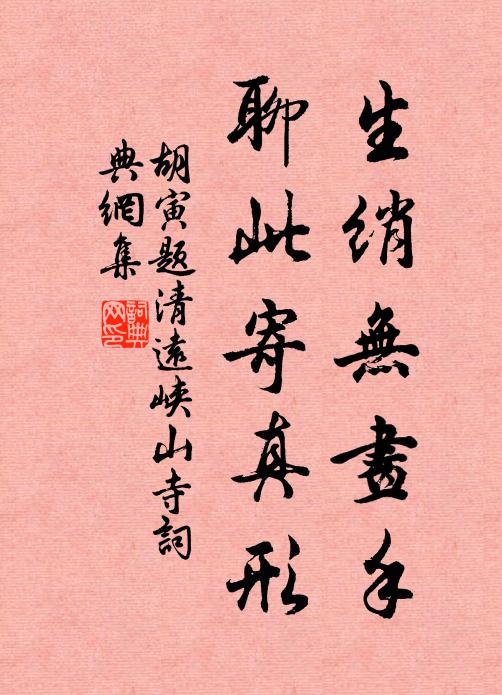 生綃無畫手
聊此寄真形
胡寅題清遠峽山寺詞
典網集
詞典网印